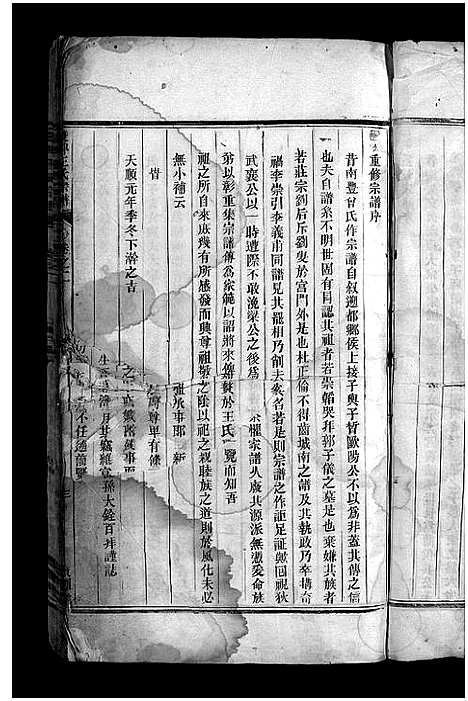 重修宗譜序
昔南豐曾氏作宗譜自叙遡都鄉侯上接子輿子晳歐陽公不以爲非蓋其傳之信
也夫自譜系不明世固有同認共祖者若崇韜哭拜郭子儀之墓是也棄嫌其族者
若莊宗劉后斥劉叟於宮門外是也杜正倫不得齒城南之譜及其執政乃卒構奇
禍李崇引李義甫同譜兄其罷相乃削去衆名若是則宗譜之作詎足証歟囘視狄
武襄公以一時遭際不敢浼梁公之後爲 懼家譜久廢其源派無憑爰命族
弟以彰重集宗譜傳爲家範以詔將來俾於王氏一覽而知吾
祖之所自來庶幾有所感發而興尊祖繫之蔭以祀之親睦族之道則於風化未必
無小補云
旹
天順元年季冬下澣之吉
事郎 新
尊里有條
孫大銓百拜謹誌
不任